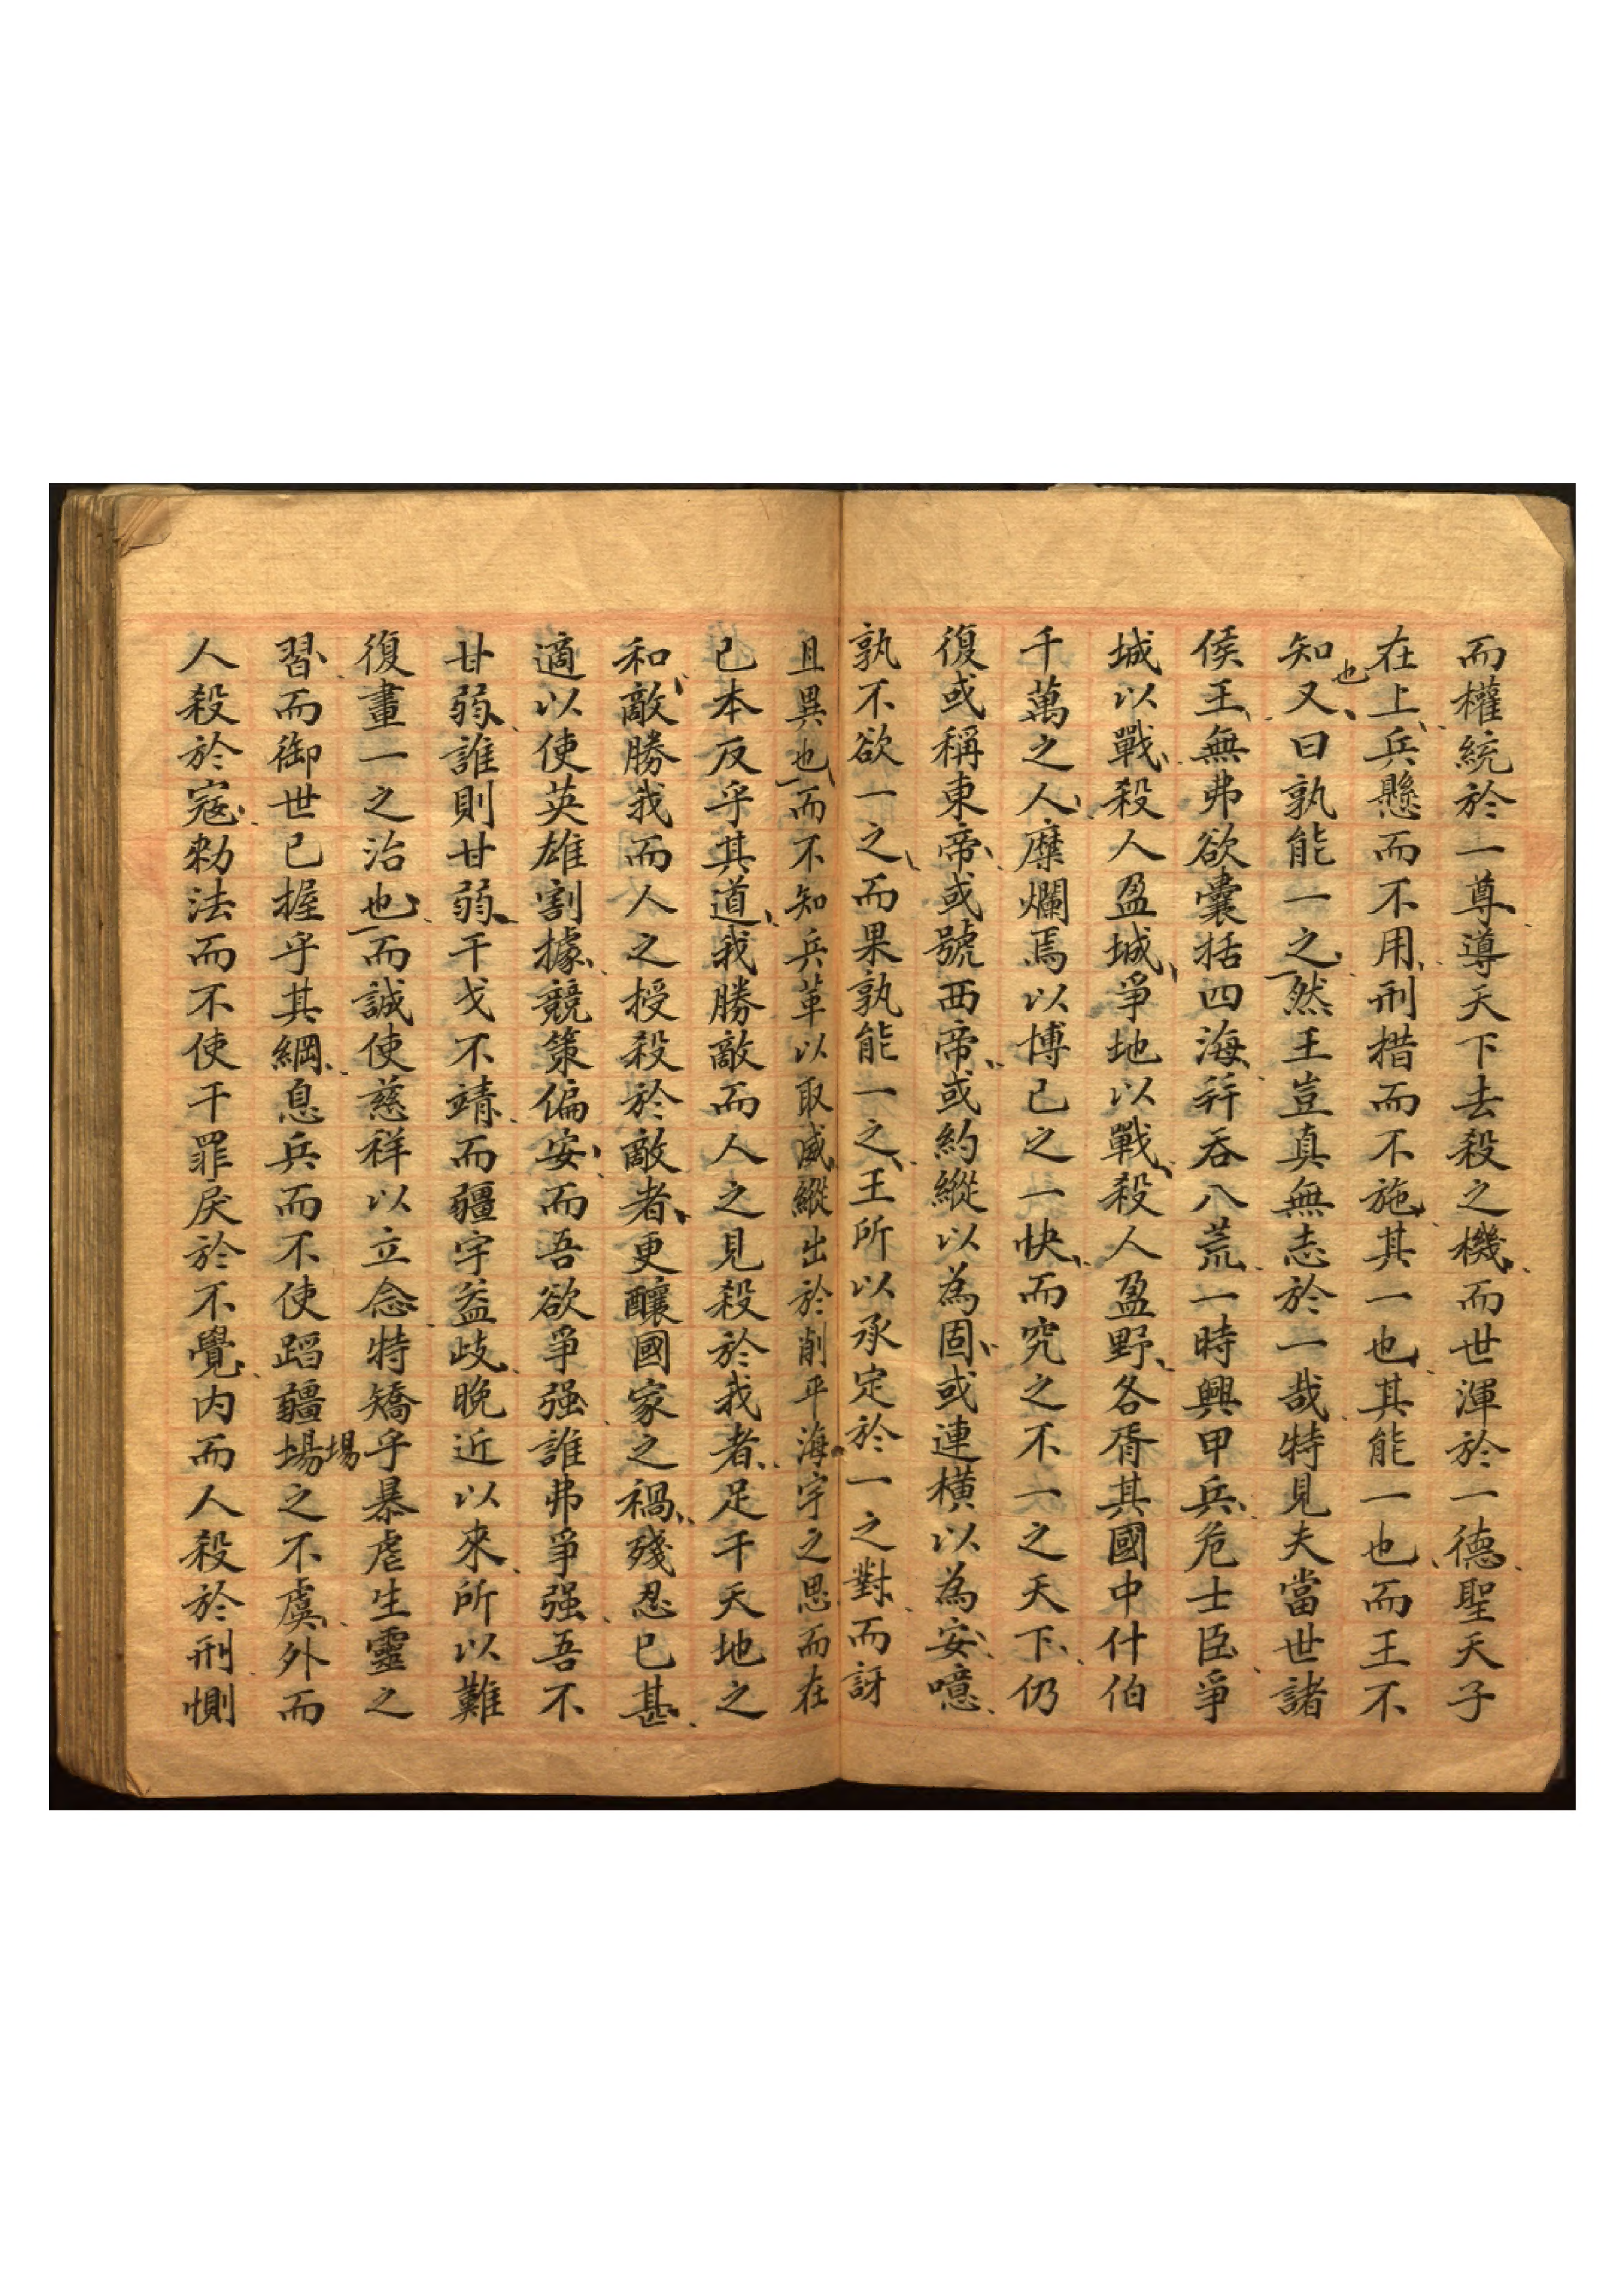 而權統於一尊尊天下去殺之機而世渾於一德聖天子
在上兵懸而不用刑措而不施其一也其能一也而王不
知也又曰孰能一之然王豈真無志於一哉特見夫當世諸
侯王無弗欲囊括四海并吞八荒一時興甲兵危士臣爭
城以戰殺人盈城爭地以戰殺人盈野各胥其國中什伯
千萬之人糜爛焉以博己之一快而究之不一之天下仍
復或稱東帝或號西帝或約縱以為固或連橫以為安噫
孰不欲一之而果孰能一之王所以承定於一之對而訝
且異也而不知兵革以取威縱出於削平海宇之思而在
已本反乎其道我勝敵而人之見殺於我者足干天地之
和敵勝我而人之授殺於敵者更釀國家之禍殘忍已甚
適以使英雄割據競策偏安而吾欲爭强誰弗爭强吾不
甘弱誰則甘弱干戈不靖而疆宇益歧晚近以來所以難
復畫一之治也而誠使慈祥以立念特矯乎暴虐生靈之
習而御世已握乎其綱息兵而不使蹈疆場埸之不虞外而
人殺於寇勑法而不使干罪戾於不覺内而人殺於刑惻